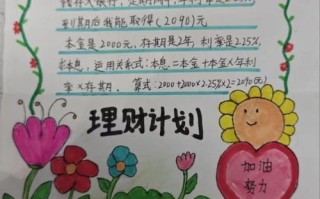 到期后我能取得(2090)元
本金是2000元,存期是2年,利率是2.25%
求本息,运用关系式:本息=本金+本金×年利
率×存期。算式:2000+2000×2.25%×2=2090(元)
理财计划
加油
努力